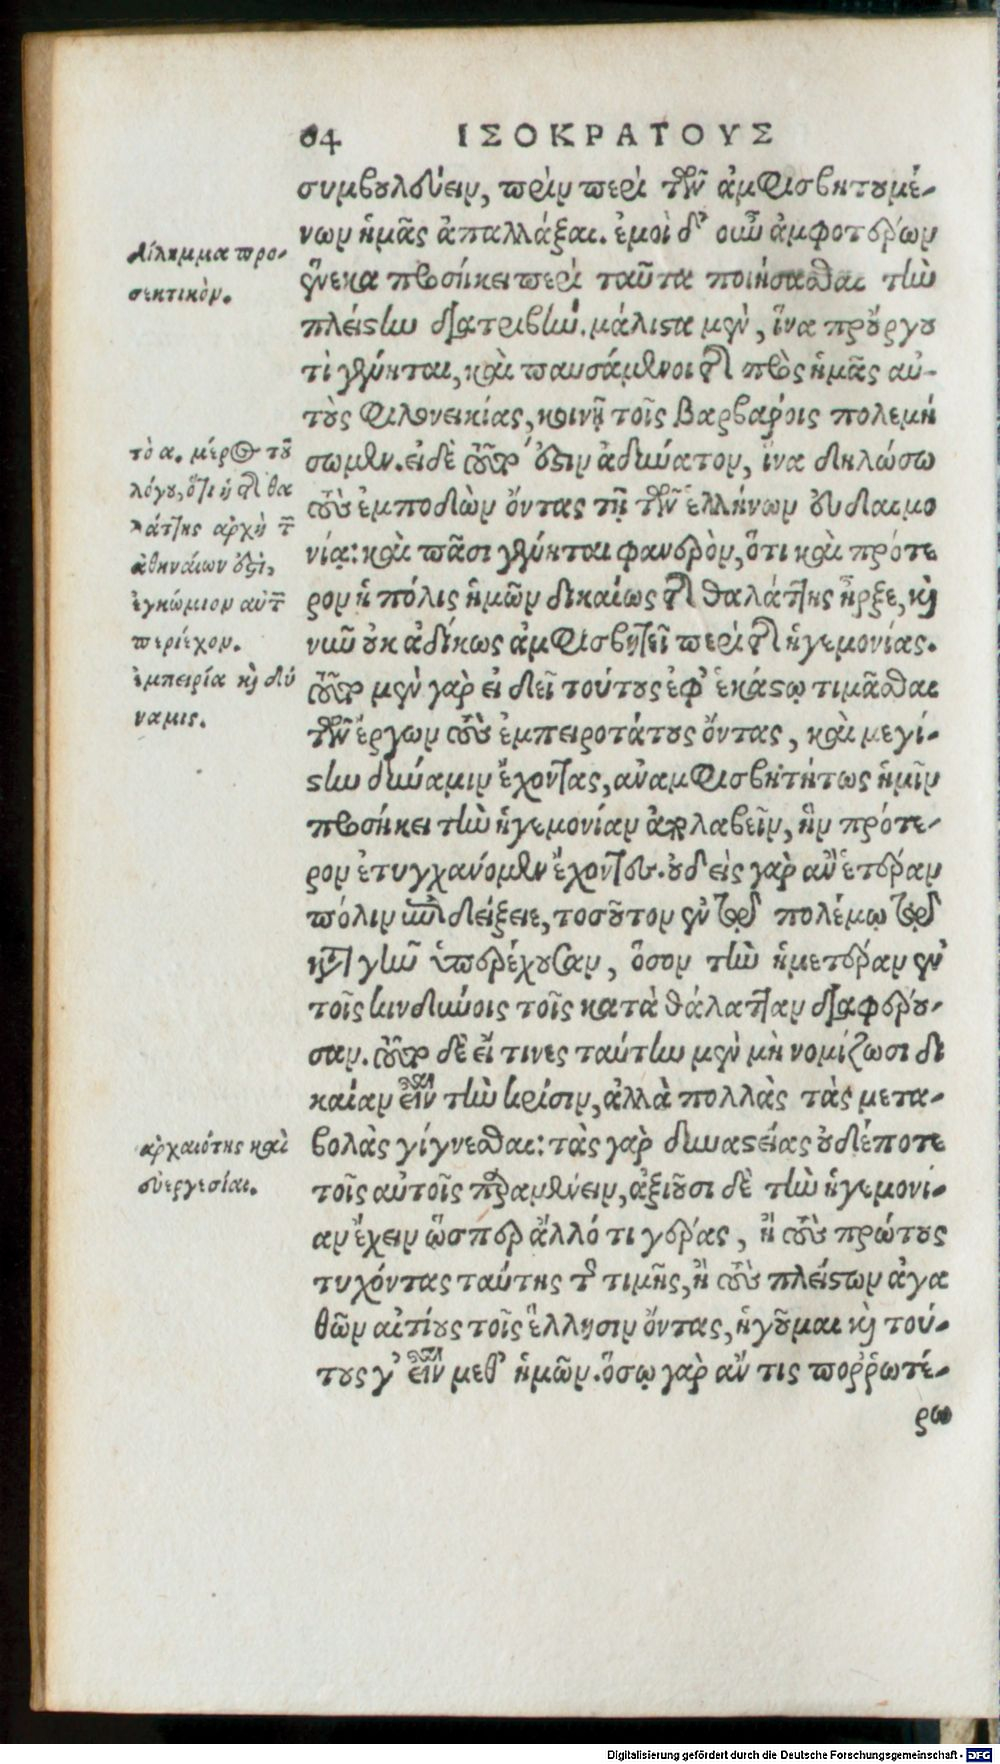 64 ΙΣΟΚΡΑΤΟΥΣ
συμβουλεύειν, πρὶν περὶ τῶν ἀμφισβητουμέ-
νων ἡμᾶς ἀπαλλάξαι. ἐμοὶ δ' οὖν ἀμφοτέρων
ἕνεκα προσήκει περὶ ταῦτα ποιήσασθαι τὴν
πλείστην διατριβήν. μάλιστα μὲν, ἵνα προὔργου
τὶ γένηται, καὶ παυσάμενοι τῆς πρὸς ἡμᾶς αὐ-
τοὺς φιλονεικίας, κοινῇ τοῖς βαρβάροις πολεμή
σωμεν. εἰ δὲ τοῦτ' ἐστὶν ἀδύνατον, ἵνα δηλώσω
τοὺς ἐμποδὼν ὄντας τῇ τῶν ἑλλήνων εὐδαιμο
νίᾳ: καὶ πᾶσι γένηται φανερὸν, ὅτι καὶ πρότε
ρον ἡ πόλις ἡμῶν δικαίως τῆς θαλάττης ἦρξε, καὶ
νῦν οὐκ ἀδίκως ἀμφισβητεῖ περὶ τῆς ἡγεμονίας.
τοῦτο μὲν γὰρ εἰ δεῖ τούτους ἐφ' ἑκάστῳ τιμᾶσθαι
τῶν ἔργων τοὺς ἐμπειροτάτους ὄντας, καὶ μεγί-
στην δύναμιν ἔχοντας, ἀναμφισβητήτως ἡμῖν
προσήκει τὴν ἡγεμονίαν ἀπολαβεῖν, ἣν πρότε-
ρον ἐτυγχάνομεν ἔχοντες. οὐδεὶς γὰρ ἂν ἑτέραν
πόλιν ἐπιδείξειε, τοσοῦτον ἐν τῷ πολέμῳ τῷ
κατὰ γῆν ὑπερέχουσαν, ὅσον τὴν ἡμετέραν ἐν
τοῖς κινδύνοις τοῖς κατὰ θάλατταν διαφέρου-
σαν. τοῦτο δὲ εἴ τινες ταύτην μὲν μὴ νομίζωσι δι
καίαν εἶναι τὴν κρίσιν, ἀλλὰ πολλὰς τὰς μετα-
βολὰς γίγνεσθαι: τὰς γὰρ δυναστείας οὐδέποτε
τοῖς αὐτοῖς παραμένειν, ἀξιοῦσι δὲ τὴν ἡγεμονί-
αν ἔχειν ὥσπερ ἄλλό τι γέρας, ἢ τοὺς πρώτους
τυχόντας ταύτης τῆς τιμῆς, ἢ τοὺς πλείστων ἀγα
θῶν αἰτίους τοῖς ἕλλησιν ὄντας, ἡγοῦμαι καὶ τού-
τους γ' εἶναι μεθ' ἡμῶν. ὅσῳ γὰρ ἄν τις πορῥωτέ-
ρω
Δίλημμα προ-
σεκτικὸν.
τὸ α. μέρος τοῦ
λόγου, ὅτι ἡ τῆς θα
λάττης ἀρχὴ τῶν
ἀθηναίων ἐστὶ,
ἐγκώμιον αὐτῶν
περιέχον.
ἐμπειρία καὶ δύ
ναμις.
ἀρχαιότης καὶ
εὐεργεσίαι.
Digitalisierung gefördert durch die Deutsche Forschungsgemeinschaft - DFG